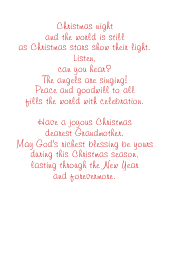 Christmas night
and the world is still
as Christmas stars show their light.
Listen,
can you hear?
The angels are singing!
Peace and goodwill to all
fills the world with celebration.

Have a joyous Christmas
dearest Grandmother.
May God's richest blessing be yours
during this Christmas season,
lasting through the New Year
and forevermore.